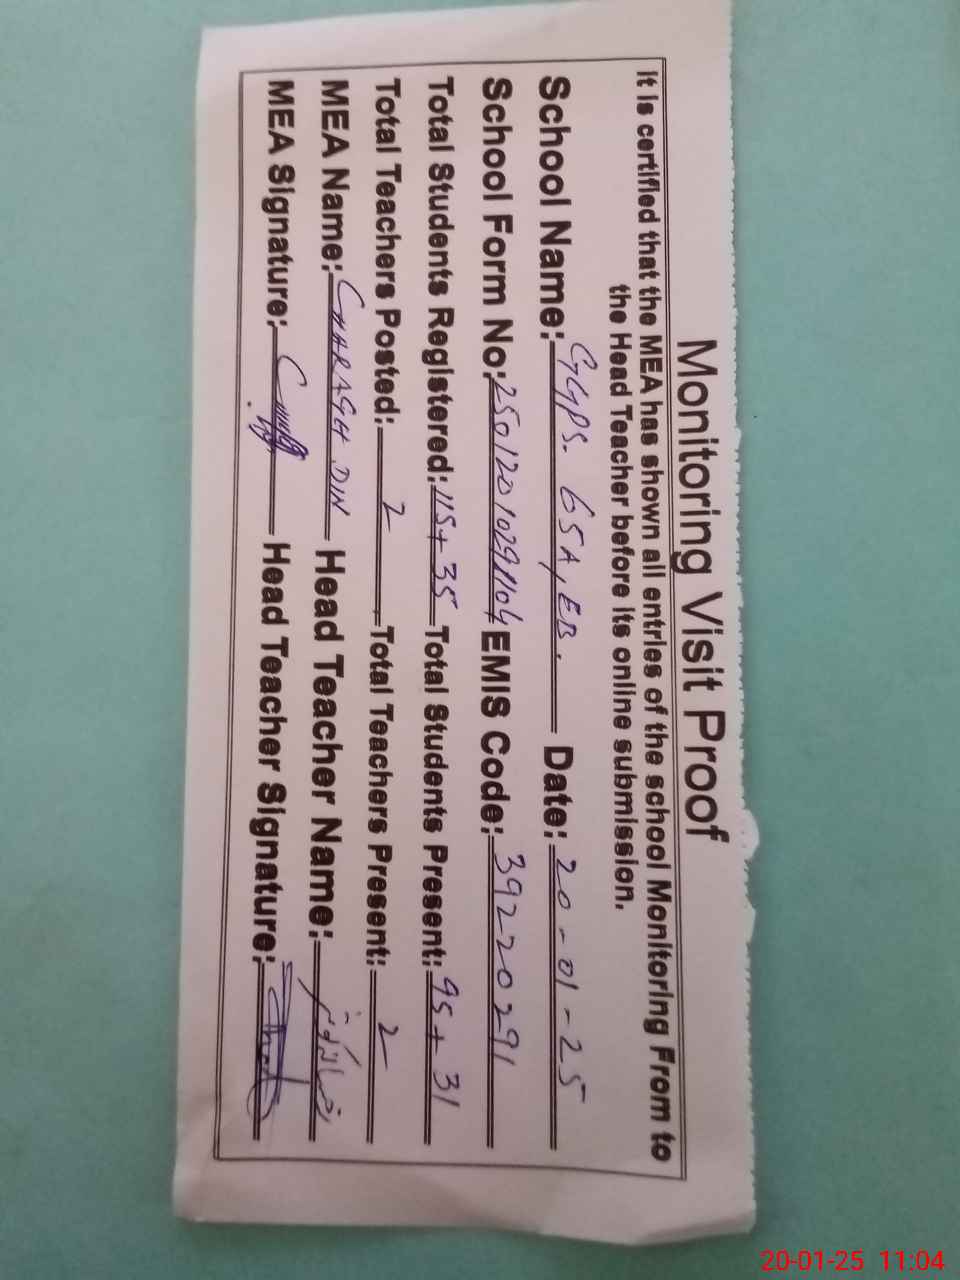 Monitoring Visit Proof
It is certified that the MEA has shown all entries of the school Monitoring From to
the Head Teacher before its online submission.
School Name: GGPS. 65A, EB. Date: 20-01-25
School Form No: EMIS Code: 39220291
Total Students Registered: 115+35 Total Students Present: 95+31
Total Teachers Posted: 2 Total Teachers Present: 2
MEA Name: CHARAGH DIN Head Teacher Name:
MEA Signature: Head Teacher Signature:
20-01-25 11:04